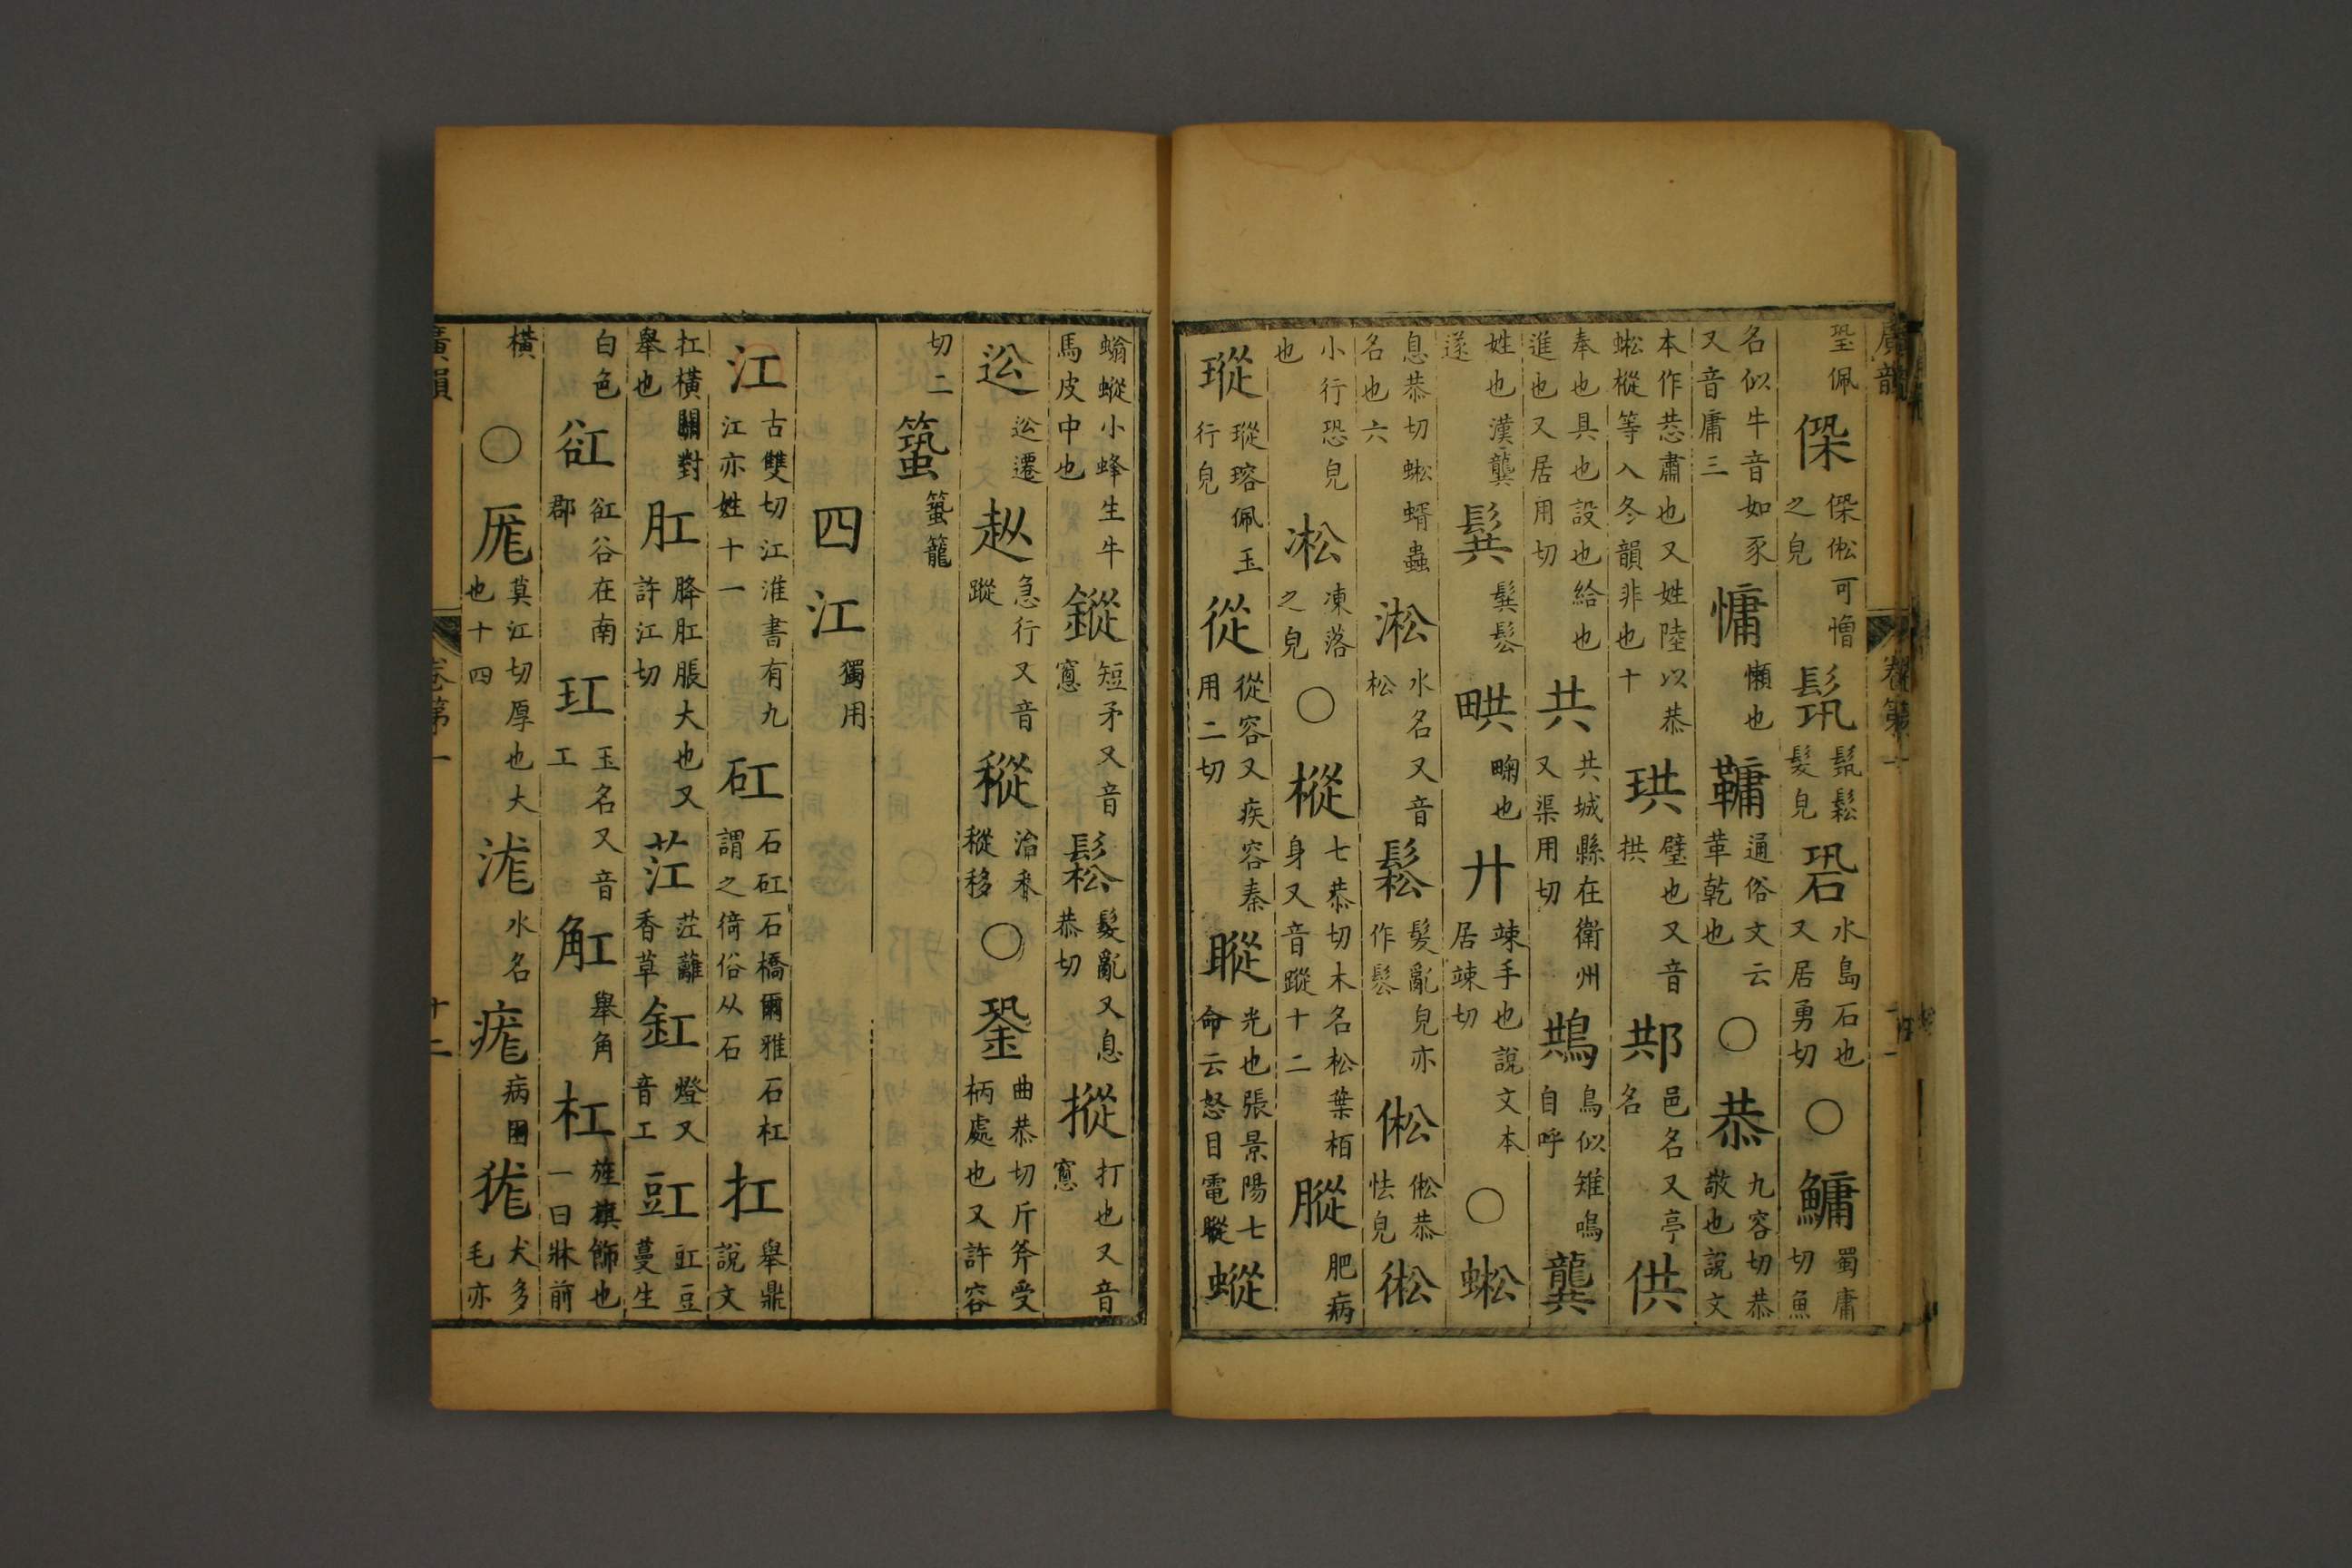 廣韻
卷第一
蛩佩㑋㑋倯可憎之皃䯳䯳鬆髮皃硓水島石也又居勇切○鱅蜀庸切魚
名似牛音如豕又音庸三慵懶也䩸通俗文云革乾也○恭九容切恭敬也說文
本作㳟肅也又姓陸以恭蜙樅等入冬韻非也十珙璧也又音拱㓋邑名又亭名供
奉也具也設也給也進也又居用切共共城縣在衛州又渠用切䳍鳥似雉鳴自呼龔
姓也漢龔遂䰁䰁鬆㽟畮也廾竦手也說文本居竦切○蜙
息恭切蜙蝑蟲名也六淞水名又音松鬆髮亂皃亦作髿倯倯恭怯皃㣝
小行恐皃也凇凍落之皃○樅七恭切木名松葉栢身又音蹤十二䐫肥病
瑽瑽瑢佩玉行皃從從容又疾容秦用二切䁓光也張景陽七命云怒目電䁓䗥
螉䗥小蜂生牛馬皮中也鏦短矛又音窻鬆髮亂又息恭切摐打也又音窻
彸彸遷𧺣急行又音蹤䅜治禾䅜移○銎曲恭切斤斧受柄處也又許容
切二蛩蛩籠
四江獨用
江古雙切江淮書有九江亦姓十一矼石矼石橋爾雅石杠謂之倚俗从石扛舉鼎說文
扛橫關對舉也肛胮肛脹大也又許江切茳茳蘺香草釭燈又音工豇豇豆蔓生
白色谾谾谷在南郡玒玉名又音工䚗舉角杠旌旗飾也一曰牀前
橫○厖莫江切厚也大也十四浝水名痝病困狵犬多毛亦
廣韻
卷第一
十二